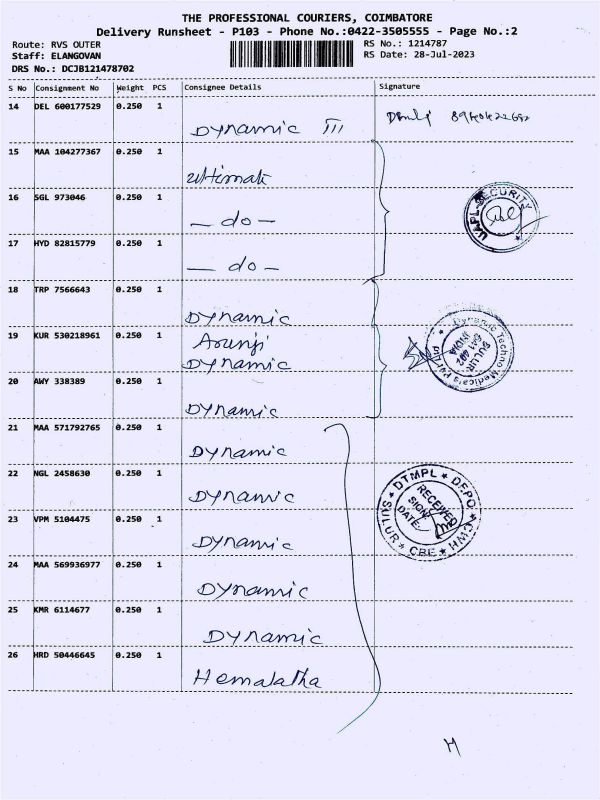 THE PROFESSIONAL COURIERS, COIMBATORE
Delivery Runsheet - P103 - Phone No.:0422-3505555 - Page No.:2
Route: RVS OUTER
Staff: ELANGOVAN
DRS No.: DCJB121478702
RS No.: 1214787
RS Date: 28-Jul-2023
S No Consignment No Weight PCS Consignee Details Signature
14 DEL 600177529 0.250 1
Dynamic III
15 MAA 104277367 0.250 1
Ultimate
16 SGL 973046 0.250 1
— do —
17 HYD 82815779 0.250 1
— do —
UAPL-SECURITY
18 TRP 7566643 0.250 1
Dynamic
19 KUR 530218961 0.250 1
Arunji
Dynamic
Dynamic Techno Medicals Pvt
SULUR
641 402
INDIA
20 AWY 338389 0.250 1
Dynamic
21 MAA 571792765 0.250 1
Dynamic
22 NGL 2458630 0.250 1
Dynamic
23 VPM 5104475 0.250 1
Dynamic
DTMPL ★ DEPO ★ HMS ★ CBE ★ SULUR ★
RECEIVED
SIGN:
DATE:
24 MAA 569936977 0.250 1
Dynamic
25 KMR 6114677 0.250 1
Dynamic
26 HRD 50446645 0.250 1
Hemalatha